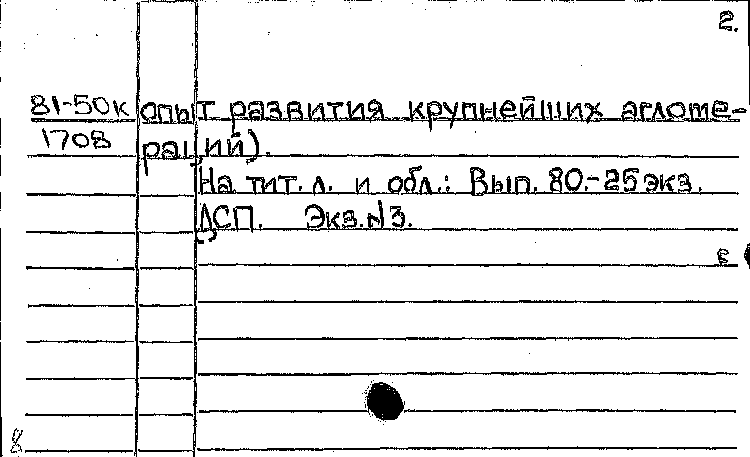 2.
81-50к опыт развития крупнейших агломе-
1708 раций).
На тит. л. и обл.: Вып. 80.-25 экз.
ДСП. Экз.N3.
8